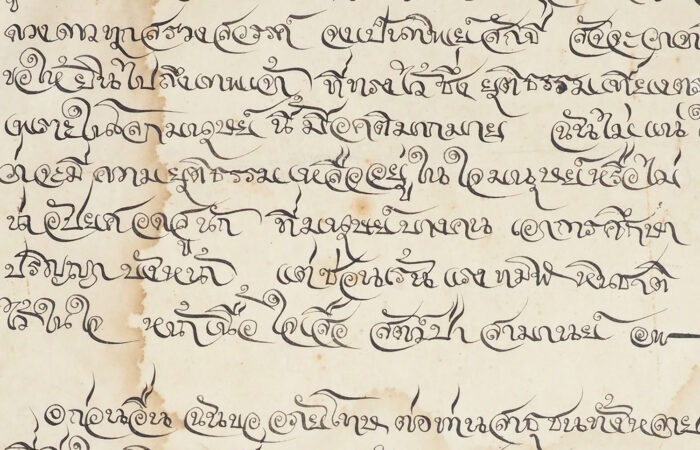 ดวงดาวทุกสรวงสวรรค์ จงเป็นทิพย์ศักขี สัจจะวาจา
ขอให้ยินไปถึงเทพเจ้า ที่ทรงไว้ซึ่ง ยุติธรรมเที่ยงตร
เพราะในโลกมนุษย์นี้ มีอคติมากมาย ฉันไม่แน่
ว่าจะมีความยุติธรรมเหลืออยู่ในใจมนุษย์หรือไม่
น่าอัปยศอดสูนัก ที่มนุษย์บางคน เอาการศึกษา
ปริญญาบังหน้า แต่ซ่อนเร้น แรงทมิฬ หินชาติ
ไว้ในใจ หน้าเนื้อใจเสือ สัตว์ป่า สามานย์
๏ก่อนอื่น ฉันขออภัยโทษ ต่อท่านสาธุชนทั้งหลาย